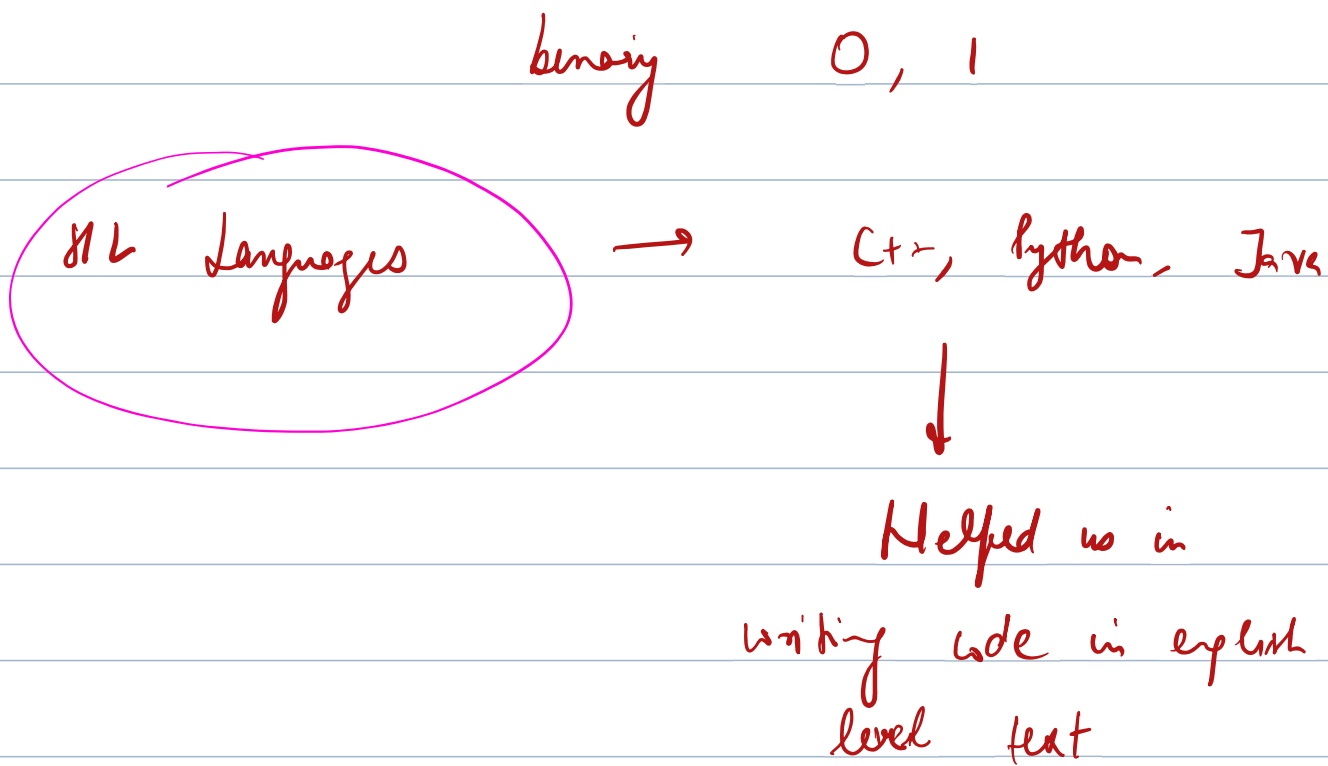 binary 0, 1
HL Languages → C++, Python, Java
↓
Helped us in
writing code in english
level text